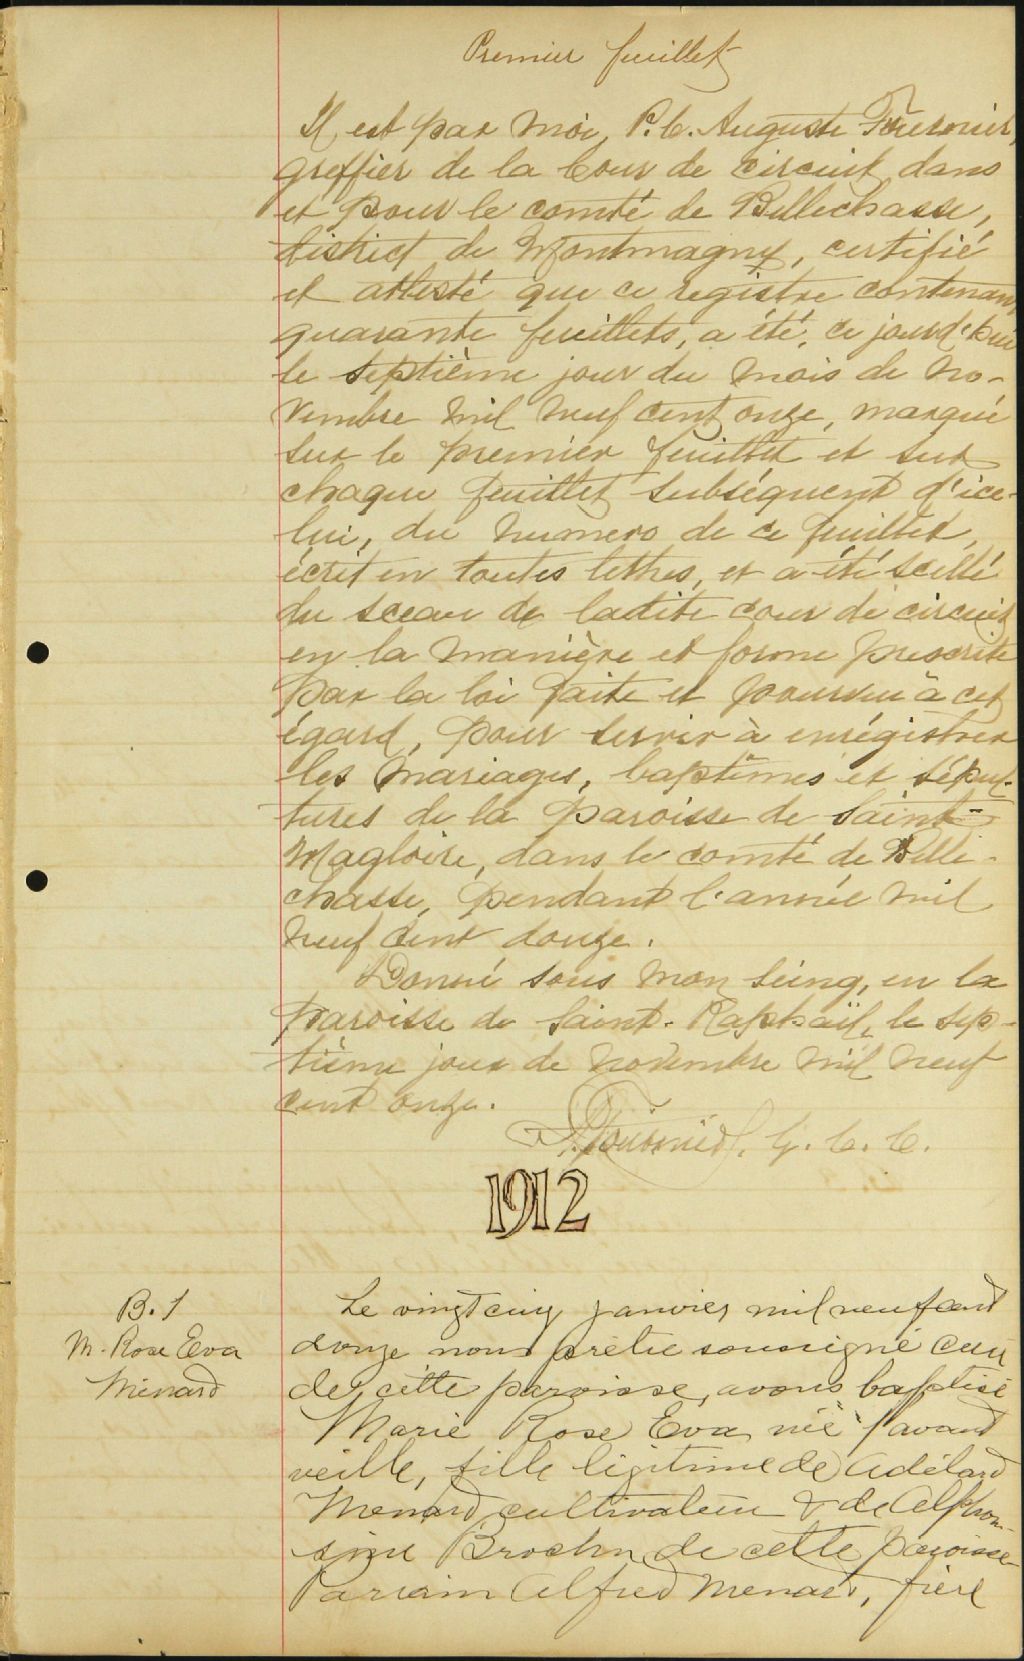 Premier feuillet
Il est par moi, P. C. Auguste Fournier,
greffier de la Cour de circuit dans
et pour le comté de Bellechasse,
district de Montmagny, certifié
et attesté que ce registre contenant
quarante feuillets, a été, ce jourd'hui
le septième jour du mois de no-
vembre mil neuf cent onze, marqué
sur le premier feuillet et sur
chaque feuillet subséquent d'ice-
lui, du numero de ce feuillet,
écrit en toutes lettres, et a été scellé
du sceau de ladite cour de circuit
en la manière et forme prescrite
par la loi faite et pourvue à cet
égard, pour servir à enrégistrer
les mariages, baptêmes et sépul-
tures de la paroisse de Saint-
Magloire, dans le comté de Belle-
chasse, pendant l'année mil
neuf cent douze.
Donné sous mon seing, en la
paroisse de Saint-Raphaël, le sep-
tième jour de novembre mil neuf
cent onze.
Fournier, G. C. C.
1912
B. 1
M. Rose Eva
Ménard
Le vingt cinq janvier mil neuf cent
douze nous prêtre soussigné curé
de cette paroisse, avons baptisé
Marie Rose Eva née l'avant
veille, fille légitime de Adélard
Menard cultivateur & de Alphon-
sine Brochu de cette paroisse
Parrain Alfred Menard, frère